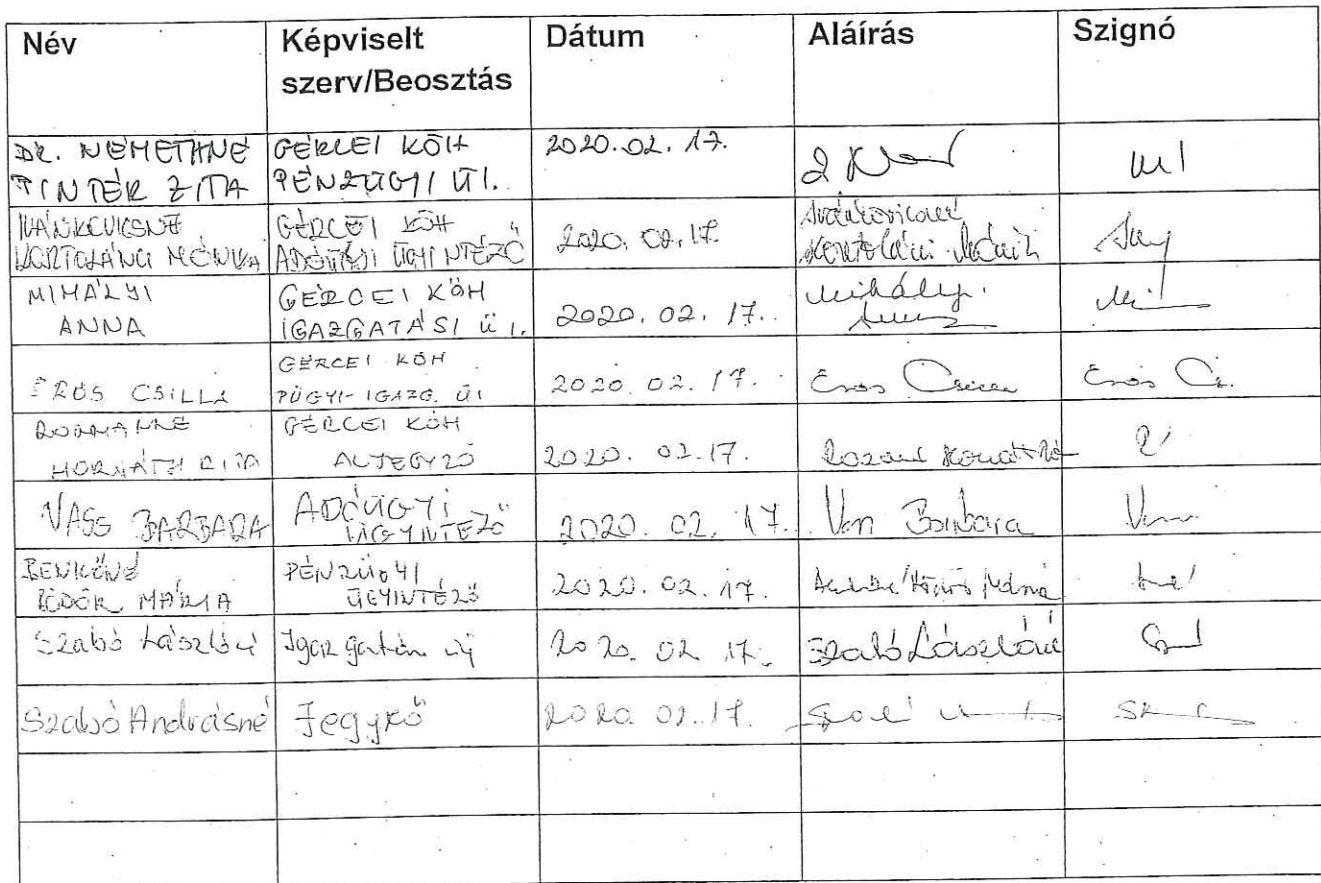 Név
Képviselt
szerv/Beosztás
Dátum
Aláírás
Szignó
DR. NÉMETHNÉ
PINTÉR ZITA
GÉRCEI KÖH
PÉNZÜGYI ÜI.
2020.02.17.
MÓNIKA
GÉRCEI KÖH
ADÓÜGYI ÜGYINTÉZŐ
2020.02.17.
MIHÁLYI
ANNA
GÉRCEI KÖH
IGAZGATÁSI ÜI.
2020.02.17.
Mihályi
Anna
ERŐS CSILLA
GÉRCEI KÖH
PÜGYI-IGAZG. ÜI
2020.02.17.
Erős Csilla
Erős Cs.
HORVÁTH RITA
GÉRCEI KÖH
ALJEGYZŐ
2020.02.17.
VASS BARBARA
ADÓÜGYI
ÜGYINTÉZŐ
2020.02.17.
Vass Barbara
BENKŐNÉ
MÁRIA
PÉNZÜGYI
ÜGYINTÉZŐ
2020.02.17.
Szabó Lászlóné
Igazgatási üi
2020.02.17.
Szabó Lászlóné
Szabó Andrásné
Jegyző
2020.02.17.